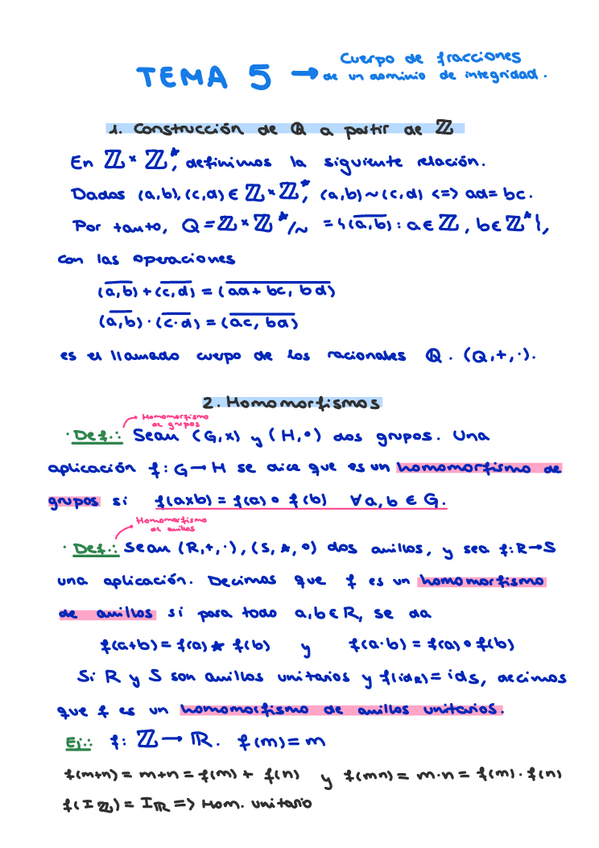 TEMA 5 → Cuerpo de fracciones
de un dominio de integridad.
1. Construcción de ℚ a partir de ℤ
En ℤ×ℤ*, definimos la siguiente relación.
Dados (a,b),(c,d) ∈ ℤ×ℤ*, (a,b)~(c,d) <=> ad=bc.
Por tanto, Q = ℤ×ℤ*/~ = {(a,b)̅ : a∈ℤ, b∈ℤ*},
con las operaciones
(a,b)̅ + (c,d)̅ = (ad+bc, bd)̅
(a,b)̅ · (c·d)̅ = (ac, bd)̅
es el llamado cuerpo de los racionales ℚ. (Q,+,·).
2. Homomorfismos
Homomorfismo
de grupos
· Def.: Sean (G,x) y (H,∘) dos grupos. Una
aplicación f: G→H se dice que es un homomorfismo de
grupos si f(axb) = f(a) ∘ f(b) ∀a,b ∈ G.
Homomorfismo
de anillos
· Def.: Sean (R,+,·), (S,★,∘) dos anillos, y sea f:R→S
una aplicación. Decimos que f es un homomorfismo
de anillos si para todo a,b∈R, se da
f(a+b) = f(a) ★ f(b) y f(a·b) = f(a) ∘ f(b)
Si R y S son anillos unitarios y f(id_R) = id_S, decimos
que f es un homomorfismo de anillos unitarios.
Ej.: f: ℤ → ℝ. f(m) = m
f(m+n) = m+n = f(m) + f(n) y f(mn) = m·n = f(m)·f(n)
f(I_ℤ) = I_ℝ => Hom. unitario